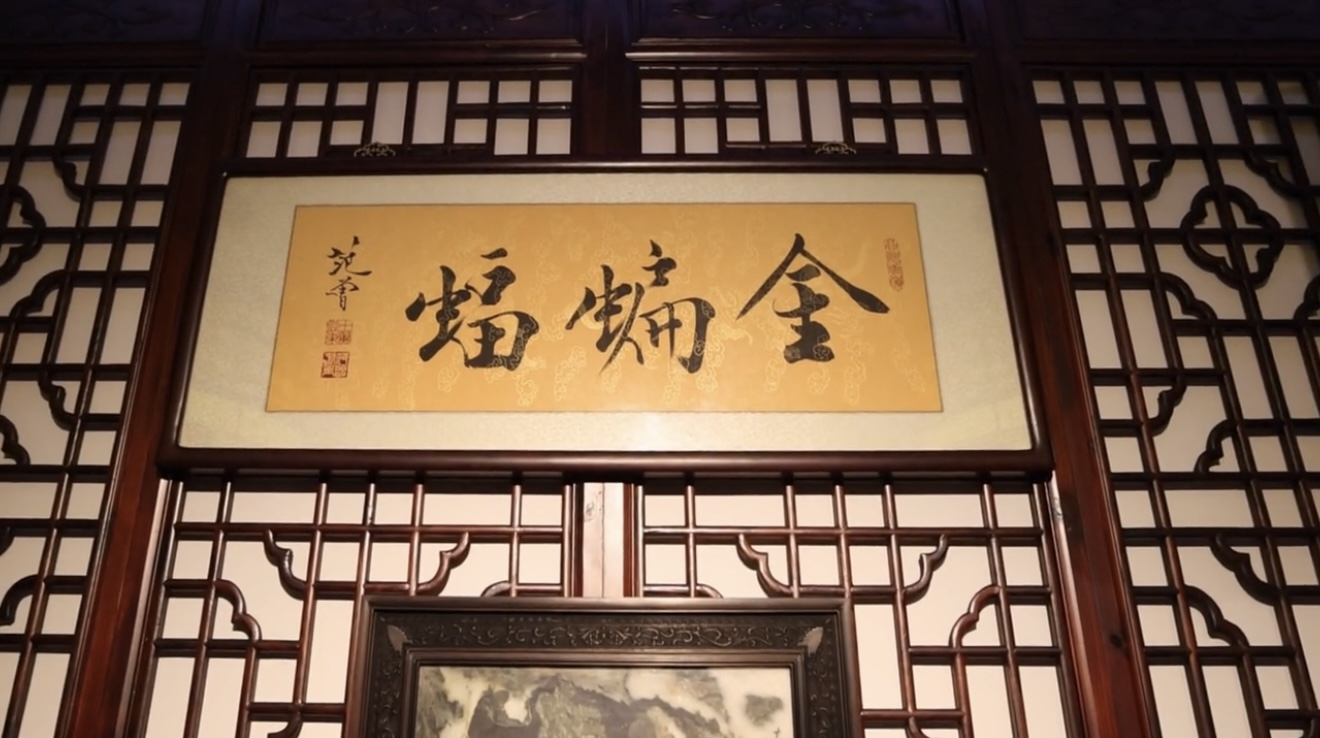 金蝙蝠
范曾